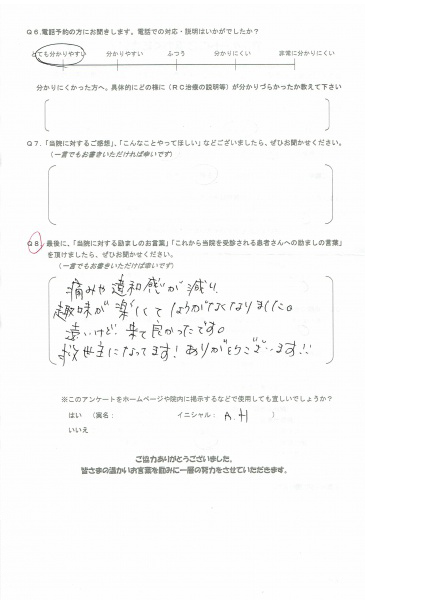 Q6.電話予約の方にお聞きします。電話での対応・説明はいかがでしたか？
とても分かりやすい 分かりやすい ふつう 分かりにくい 非常に分かりにくい
分かりにくかった方へ。具体的にどの様に（RC治療の説明等）が分かりづらかったか教えて下さい
Q7.「当院に対するご感想」、「こんなことやってほしい」などございましたら、ぜひお聞かせください。
（一言でもお書きいただければ幸いです）
Q8.最後に、「当院に対する励ましのお言葉」「これから当院を受診される患者さんへの励ましの言葉」
を頂けましたら、ぜひお聞かせください。
（一言でもお書きいただけば幸いです）
痛みや違和感が減り、
趣味が楽しくてしょうがなくなりました。
遠いけど、来て良かったです。
救世主になってます！ありがとうございます!!
※このアンケートをホームページや院内に掲示するなどで使用しても宜しいでしょうか？
はい （実名： イニシャル： A.H ）
いいえ
ご協力ありがとうございました。
皆さまの温かいお言葉を励みに一層の努力をさせていただきます。